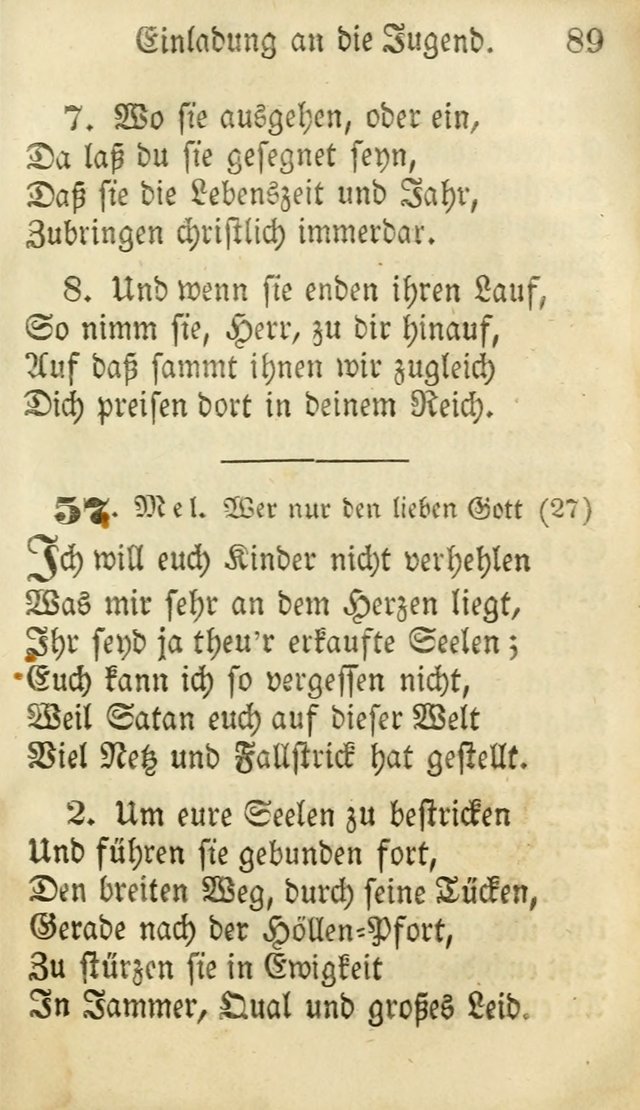 Einladung an die Jugend. 89
7. Wo sie ausgehen, oder ein,
Da laß du sie gesegnet seyn,
Daß sie die Lebenszeit und Jahr,
Zubringen christlich immerdar.
8. Und wenn sie enden ihren Lauf,
So nimm sie, Herr, zu dir hinauf,
Auf daß sammt ihnen wir zugleich
Dich preisen dort in deinem Reich.
57. Mel. Wer nur den lieben Gott (27)
Ich will euch Kinder nicht verhehlen
Was mir sehr an dem Herzen liegt,
Ihr seyd ja theu'r erkaufte Seelen;
Euch kann ich so vergessen nicht,
Weil Satan euch auf dieser Welt
Viel Netz und Fallstrick hat gestellt.
2. Um eure Seelen zu bestricken
Und führen sie gebunden fort,
Den breiten Weg, durch seine Tücken,
Gerade nach der Höllen-Pfort,
Zu stürzen sie in Ewigkeit
In Jammer, Qual und großes Leid.